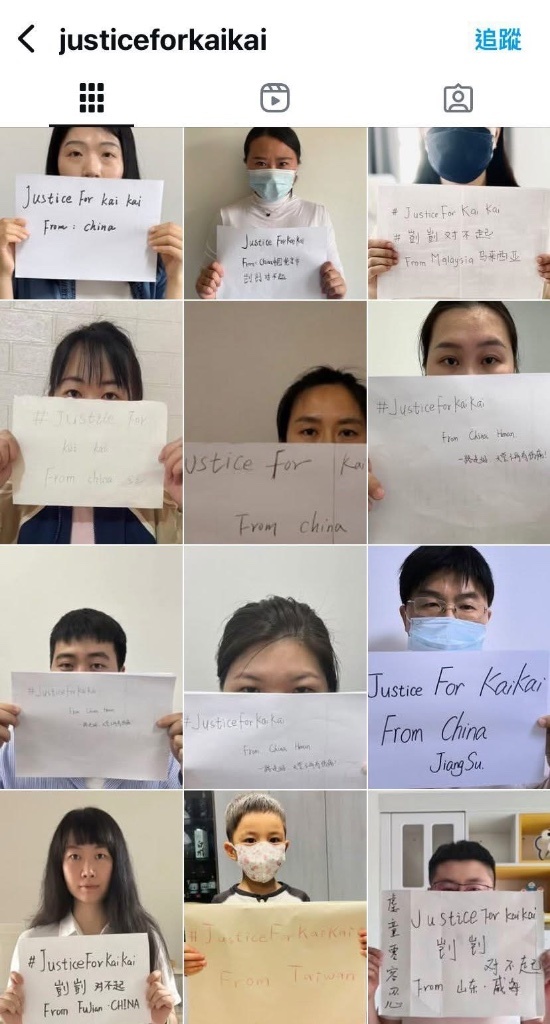 justiceforkaikai
追蹤
Justice For kai kai
From : china
Justice ForKaiKai
From: China
# Justice For Kai Kai
# 剴剴对不起
From Malaysia 马来西亚
# Justice For
kai kai
From china
ustice For kai
From china
#Justiceforkaikai
From China Hunan
#Justiceforkaikai
From China Hunan
#Justiceforkaikai
From China Hunan
Justice For KaiKai
From China
JiangSu.
#JusticeForKaiKai
剴剴 对不起
From FuJian·CHINA
#JusticeForKaiKai
From Taiwan
虐童零容忍
Justice For kaikai
剴 剴
对不起
From 山东·威海